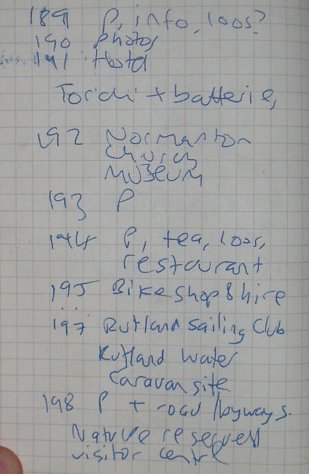 189 P, info, loos?
190 photos
191 Hotel
Torch + batteries
192 Normanton
Church
Museum
193 P
194 P, tea, loos,
restaurant
195 Bike shop & hire
197 Rutland Sailing Club
Rutland Water
Caravan site
198 P + road/byways.
Nature reserves
visitor centre